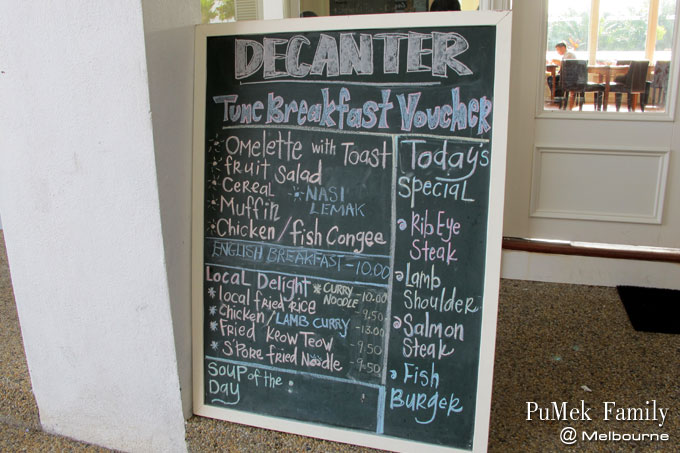 DECANTER
Tune Breakfast Voucher
Omelette with Toast
fruit Salad
Cereal
NASI
LEMAK
Muffin
Chicken/fish Congee
ENGLISH BREAKFAST - 10.00
Local Delight
* CURRY
NOODLE - 10.00
* local fried rice - 9.50
* Chicken/LAMB CURRY - 13.00
* Fried Keow Teow - 9.50
* S'Pore fried Noodle - 9.50
Soup of the
Day :
Today's
Special
Rib Eye
Steak
Lamb
Shoulder
Salmon
Steak
Fish
Burger
PuMeK Family
@ Melbourne